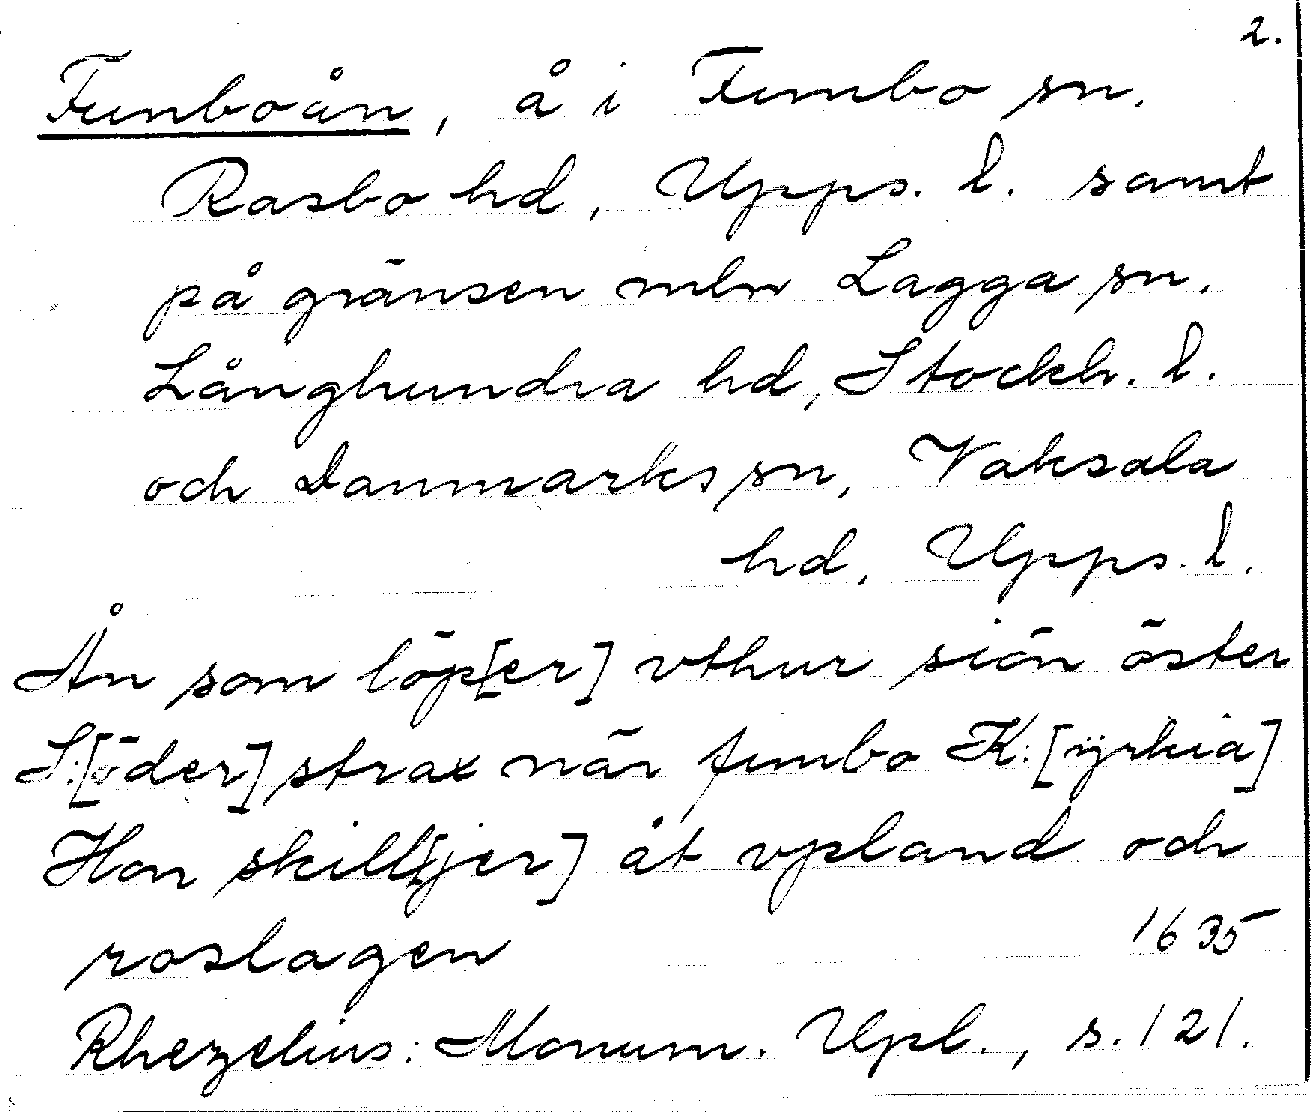 2.
Funboån, å i Funbo sn.
Rasbo hd, Upps. l. samt
på gränsen mln Lagga sn.
Långhundra hd, Stockh. l.
och Danmarks sn, Vaksala
hd, Upps. l.
Ån som löp[er] vthur siön öster
S:[öder] strax när funbo K:[ÿrkia]
Hon skill[jer] åt vpland och
roslagen 1635
Rhezelius: Monum. Upl., s. 121.